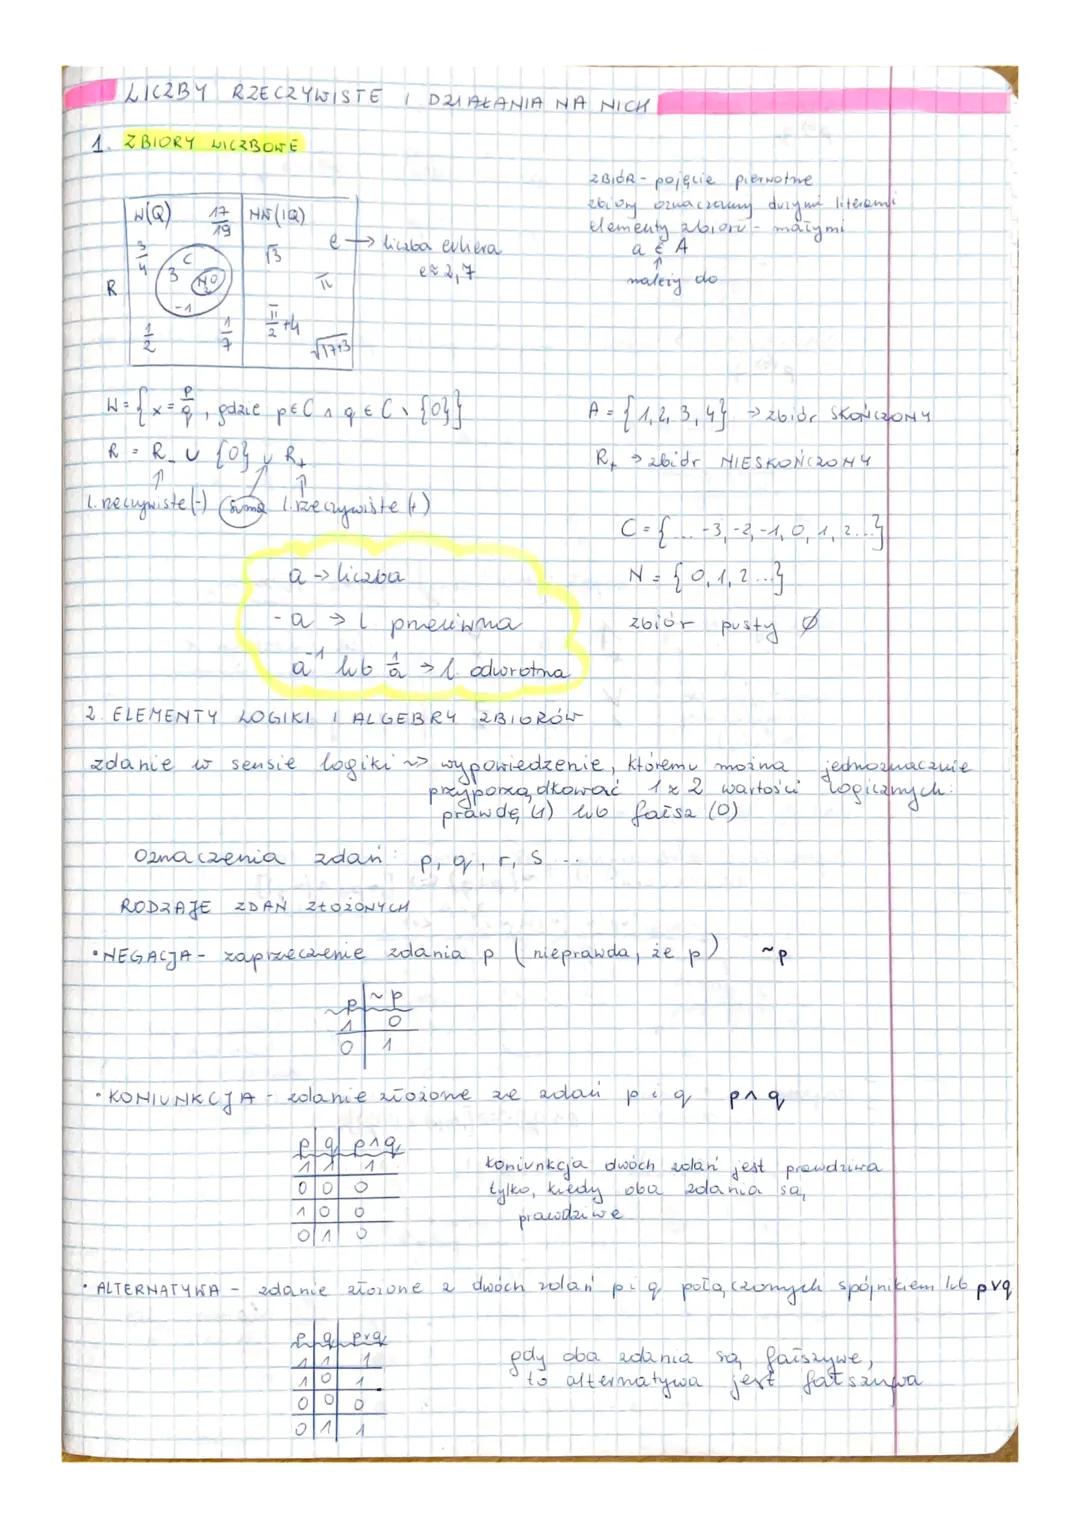 LICZBY RZECZYWISTE I DZIAŁANIA NA NICH
1. ZBIORY LICZBOWE
ZBIÓR - pojęcie pierwotne
zbiory oznaczamy dużymi literami
elementy zbioru - małymi
a ∈ A
↑
należy do
W(Q) 17/19 NW(IQ)
3/4 C √3 e → liczba eulera
3 N0 π e ≈ 2,7
R -1
1/2 1/7 π/2+4 √17+3
W = { x = p/q, gdzie p ∈ C ∧ q ∈ C \ {0}}
A = {1, 2, 3, 4} → zbiór SKOŃCZONY
R = R_ ∪ {0} ∪ R+
R+ → zbiór NIESKOŃCZONY
l. rzeczywiste (-) suma l. rzeczywiste (+)
C = {... -3, -2, -1, 0, 1, 2...}
a → liczba
N = {0, 1, 2...}
-a → l przeciwna
zbiór pusty ∅
a⁻¹ lub 1/a → l. odwrotna
2. ELEMENTY LOGIKI I ALGEBRY ZBIORÓW
zdanie w sensie logiki ~> wypowiedzenie, któremu można jednoznacznie
przyporządkować 1 z 2 wartości logicznych:
prawdę (1) lub fałsz (0)
Oznaczenia zdań: p, q, r, s ...
RODZAJE ZDAŃ ZŁOŻONYCH
• NEGACJA - zaprzeczenie zdania p (nieprawda, że p) ~p
p | ~p
1 | 0
0 | 1
• KONIUNKCJA - zdanie złożone ze zdań p i q p ∧ q
p | q | p ∧ q
1 | 1 | 1
0 | 0 | 0
1 | 0 | 0
0 | 1 | 0
koniunkcja dwóch zdań jest prawdziwa
tylko, kiedy oba zdania są
prawdziwe
• ALTERNATYWA - zdanie złożone z dwóch zdań p i q połączonych spójnikiem lub p ∨ q
p | q | p ∨ q
1 | 1 | 1
1 | 0 | 1
0 | 0 | 0
0 | 1 | 1
gdy oba zdania są fałszywe,
to alternatywa jest fałszywa